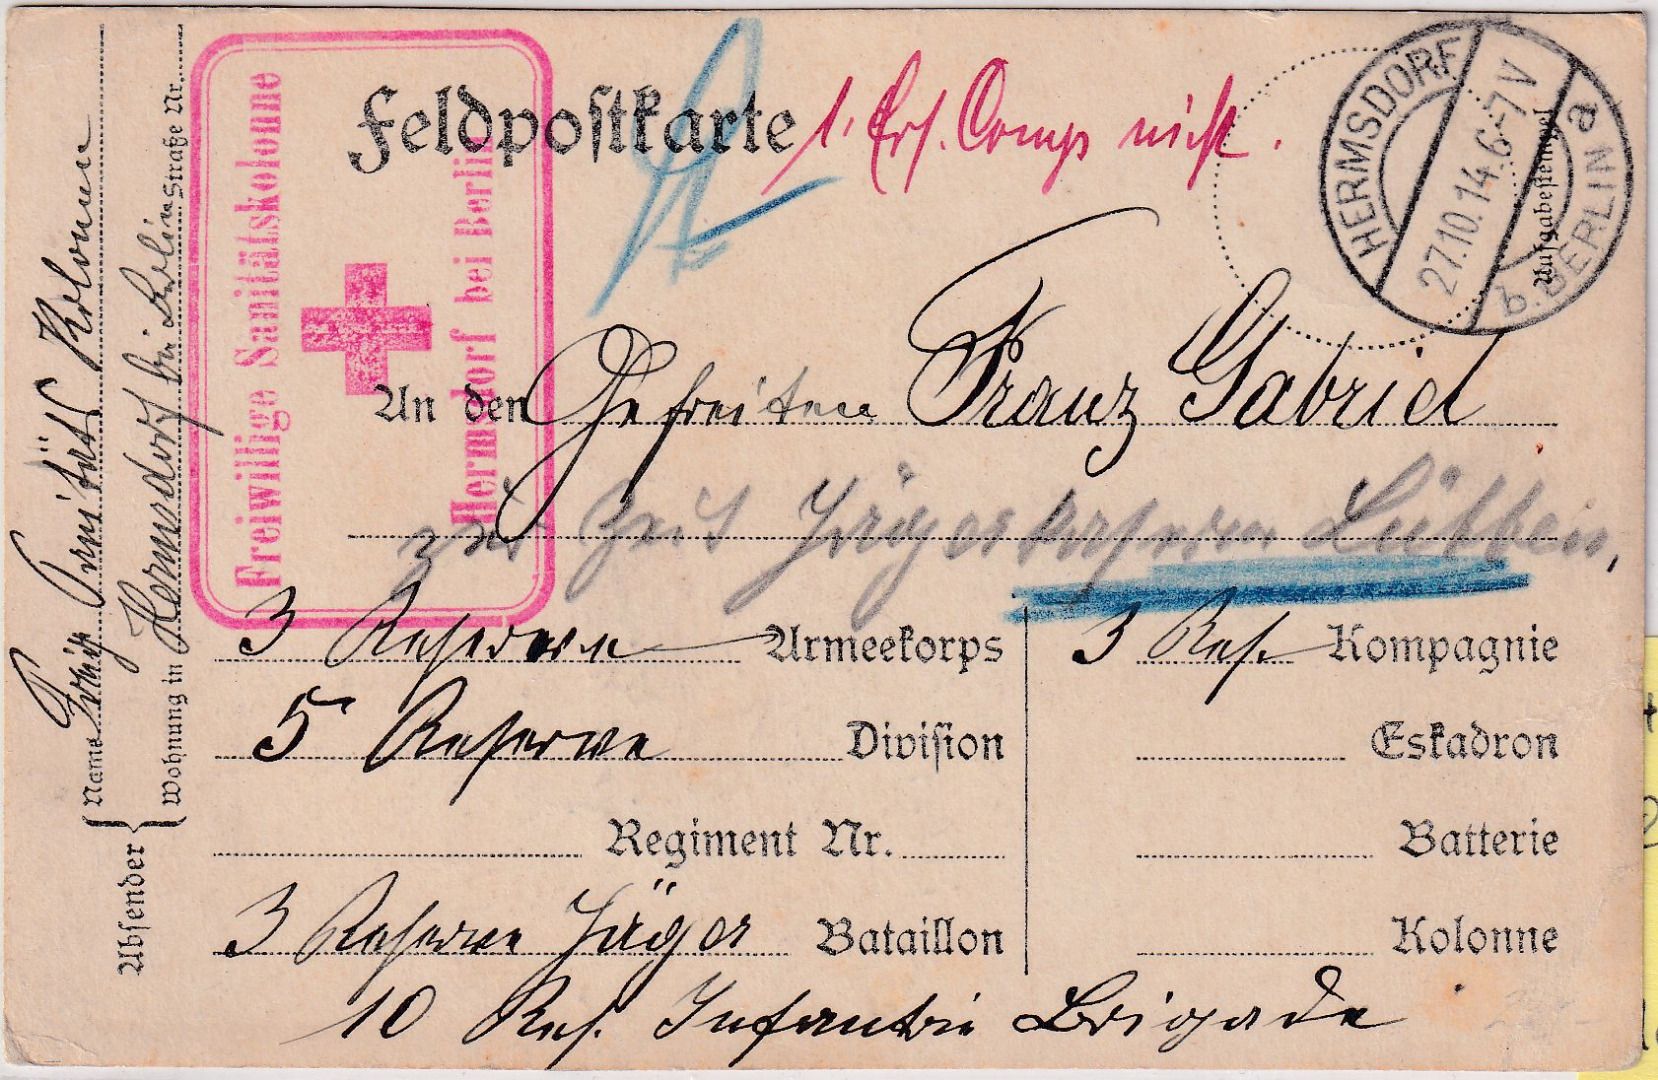 Feldpostkarte
1. Ers. Comp nicht.
HERMSDORF b. BERLIN a
27.10.14. 6-7 V
Aufgabestempel
Freiwillige Sanitätskolonne
Hermsdorf bei Berlin
An den Gefreiten Franz Gabriel
zur Zeit Jägerkaserne Lübben,
3 Reserve Armeekorps
3 Res. Kompagnie
5 Reserve Division
Eskadron
Regiment Nr.
Batterie
3 Reserve Jäger Bataillon
Kolonne
10 Res. Infantrie Brigade
Absender
Name Sanitäts Kolonne
Wohnung in Hermsdorf bei Berlin Straße Nr.